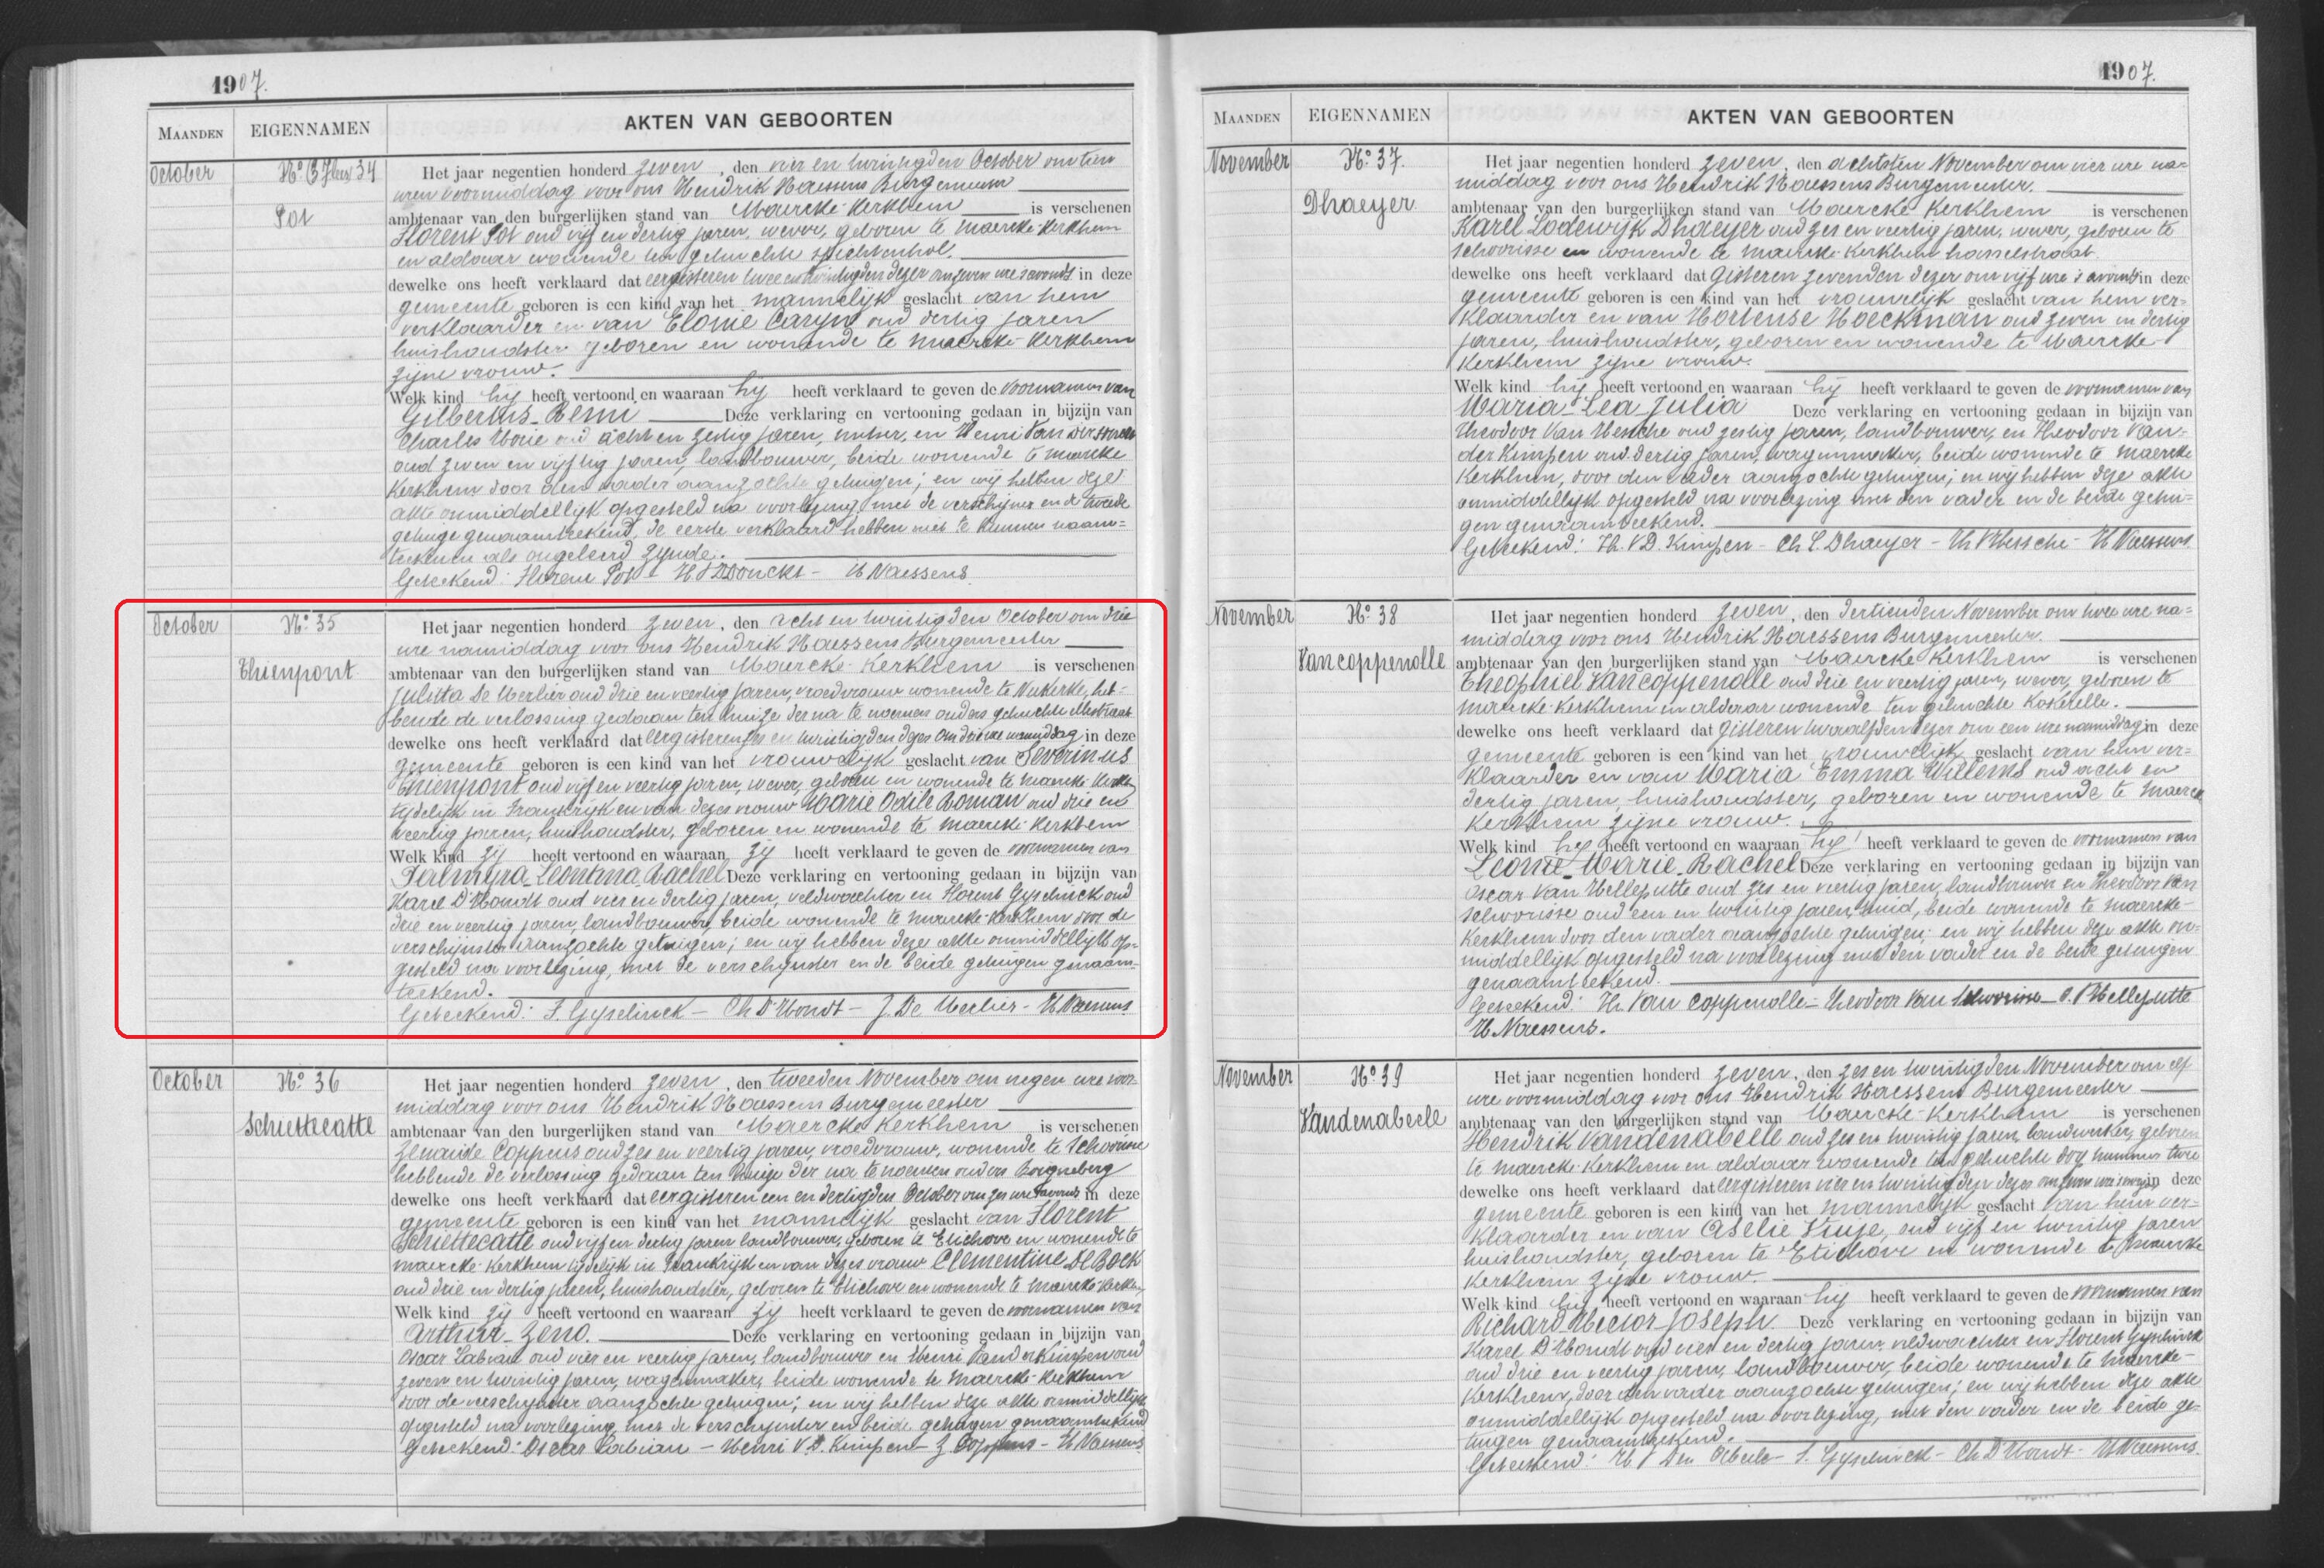 1907.
MAANDEN
EIGENNAMEN
AKTEN VAN GEBOORTEN
October
No 34
Pot
Het jaar negentien honderd zeven, den vier en twintigden October om tien
uren voormiddag voor ons Hendrik Naessens Burgemeester
ambtenaar van den burgerlijken stand van Maercke-Kerkhem is verschenen
Florent Pot oud vijf en dertig jaren, wever, geboren te Maercke-Kerkhem
en aldaar wonende ten gehuchte
dewelke ons heeft verklaard dat eergisteren twee en twintigden dezer om zeven ure savonds in deze
gemeente geboren is een kind van het mannelijk geslacht van hem
verklaarder en van Elonie Caryn oud dertig jaren
huishoudster geboren en wonende te Maercke-Kerkhem
zijne vrouw.
Welk kind hij heeft vertoond en waaraan hij heeft verklaard te geven de voornamen van
Gilbertus-Remi Deze verklaring en vertooning gedaan in bijzijn van
Charles oud acht en zestig jaren, en Henri Van
oud zeven en vijftig jaren, landbouwer, beide wonende te Maercke
Kerkhem door den vader aanzochte getuigen; en wij hebben deze
akte onmiddellijk opgesteld na voorlezing, met de verschijner en de tweede
getuige genaamteekend, de eerste verklaard hebben niet te kunnen naam=
teekenen als ongeleerd zijnde.
Geteekend: Florent Pot - H VDDonckt - H Naessens
October
No 35
Thienpont
Het jaar negentien honderd zeven, den acht en twintigden October om drie
ure namiddag voor ons Hendrik Naessens Burgemeester
ambtenaar van den burgerlijken stand van Maercke-Kerkhem is verschenen
Julitta De Merlier oud drie en veertig jaren, vroedvrouw wonende te Nukerke, heb=
bende de verlossing gedaan ten huize der na te noemen ouders gehuchte
dewelke ons heeft verklaard dat eergisteren zes en twintigden dezer om drie ure namiddag in deze
gemeente geboren is een kind van het vrouwelijk geslacht van Severinus
Thienpont oud vijf en veertig jaren, wever, geboren en wonende te Maercke-Kerkhem
tijdelijk in Frankrijk en van dezes vrouw Marie Odile Roman oud drie en
veertig jaren, huishoudster, geboren en wonende te Maercke-Kerkhem
Welk kind zij heeft vertoond en waaraan zij heeft verklaard te geven de voornamen van
Palmyra-Leontina-Rachel Deze verklaring en vertooning gedaan in bijzijn van
Karel D'Hondt oud vier en dertig jaren, veldwachter en Florent Gyselinck oud
drie en veertig jaren, landbouwer, beide wonende te Maercke-Kerkhem door de
verschijnster aanzochte getuigen; en wij hebben deze akte onmiddellijk op=
gesteld na voorlezing, met de verschijnster en de beide getuigen genaam=
teekend.
Geteekend: F. Gyselinck - Ch D'Hondt - J. De Merlier - H Naessens
October
No 36
Schiettecatte
Het jaar negentien honderd zeven, den tweeden November om negen ure voor=
middag voor ons Hendrik Naessens Burgemeester
ambtenaar van den burgerlijken stand van Maercke-Kerkhem is verschenen
Zenaide Coppens oud zes en veertig jaren, vroedvrouw, wonende te Schoorisse
hebbende de verlossing gedaan ten huize der na te noemen ouders
dewelke ons heeft verklaard dat eergisteren een en dertigden October om zes ure savonds in deze
gemeente geboren is een kind van het mannelijk geslacht van Florent
Schiettecatte oud vijf en dertig jaren landbouwer, geboren te Etichove en wonende te
Maercke-Kerkhem tijdelijk in Frankrijk en van dezes vrouw Clementine De Bock
oud drie en dertig jaren, huishoudster, geboren te Etichove en wonende te Maercke-Kerkhem
Welk kind zij heeft vertoond en waaraan zij heeft verklaard te geven de voornamen van
Arthur-Zeno. Deze verklaring en vertooning gedaan in bijzijn van
Oscar Labiau oud vier en veertig jaren, landbouwer en Henri Vander Kimpen oud
zeven en twintig jaren, wagenmaker, beide wonende te Maercke-Kerkhem
door de verschijnster aanzochte getuigen; en wij hebben deze akte onmiddellijk
opgesteld na voorlezing, met de verschijnster en beide getuigen genaamteekend
Geteekend: Oscar Labiau - Henri V.D. Kimpen - Z Coppens - H Naessens
1907.
MAANDEN
EIGENNAMEN
AKTEN VAN GEBOORTEN
November
No 37.
Dhaeyer
Het jaar negentien honderd zeven, den achtsten November om vier ure na=
middag voor ons Hendrik Naessens Burgemeester.
ambtenaar van den burgerlijken stand van Maercke-Kerkhem is verschenen
Karel Lodewijk Dhaeyer oud zes en veertig jaren, wever, geboren te
Schoorisse en wonende te Maercke-Kerkhem hasselstraat.
dewelke ons heeft verklaard dat gisteren zevenden dezer om vijf ure s'avonds in deze
gemeente geboren is een kind van het vrouwelijk geslacht van hem ver=
klaarder en van Hortense Hoeckman oud zeven en dertig
jaren, huishoudster, geboren en wonende te Maercke-
Kerkhem zijne vrouw.
Welk kind hij heeft vertoond en waaraan hij heeft verklaard te geven de voornamen van
Maria-Lea-Julia Deze verklaring en vertooning gedaan in bijzijn van
Theodoor Van Hessche oud zestig jaren, landbouwer, en Theodoor Van=
der Kimpen oud dertig jaren, wagenmaker, beide wonende te Maercke
Kerkhem, door den vader aanzochte getuigen; en wij hebben deze akte
onmiddellijk opgesteld na voorlezing met den vader en de beide getui=
gen genaamteekend.
Geteekend: Th. V.D. Kimpen - Ch L. Dhaeyer - Th VHessche - H Naessens
November
No 38
Vancoppenolle
Het jaar negentien honderd zeven, den dertienden November om twee ure na=
middag voor ons Hendrik Naessens Burgemeester.
ambtenaar van den burgerlijken stand van Maercke-Kerkhem is verschenen
Theophiel Vancoppenolle oud drie en veertig jaren, wever, geboren te
Maercke-Kerkhem en aldaar wonende ten gehuchte Kokerelle.
dewelke ons heeft verklaard dat gisteren twaalfden dezer om een ure namiddag in deze
gemeente geboren is een kind van het vrouwelijk geslacht van hem ver=
klaarder en van Maria Emma Willems oud acht en
dertig jaren, huishoudster, geboren en wonende te Maercke
Kerkhem zijne vrouw.
Welk kind hij heeft vertoond en waaraan hij heeft verklaard te geven de voornamen van
Leonie-Marie-Rachel Deze verklaring en vertooning gedaan in bijzijn van
Oscar Van Helleputte oud zes en veertig jaren, landbouwer en Theodoor Van
Schoorisse oud een en twintig jaren, smid, beide wonende te Maercke-
Kerkhem door den vader aanzochte getuigen; en wij hebben deze akte on=
middellijk opgesteld na voorlezing met den vader en de beide getuigen
genaamteekend.
Geteekend: Th. Van Coppenolle - Theodoor Van Schoorisse - O. VHelleputte
H Naessens.
November
No 39
Vandenabeele
Het jaar negentien honderd zeven, den zes en twintigden November om elf
ure voormiddag voor ons Hendrik Naessens Burgemeester
ambtenaar van den burgerlijken stand van Maercke-Kerkhem is verschenen
Hendrik Vandenabeele oud zes en twintig jaren, landwerker, geboren
te Maercke-Kerkhem en aldaar wonende ten gehuchte nummer twee
dewelke ons heeft verklaard dat eergisteren vier en twintigden dezer om in deze
gemeente geboren is een kind van het mannelijk geslacht van hem ver=
klaarder en van oud vijf en twintig jaren
huishoudster, geboren te Etichove en wonende te Maercke
Kerkhem zijne vrouw.
Welk kind hij heeft vertoond en waaraan hij heeft verklaard te geven de voornamen van
Richard-Hector-Joseph. Deze verklaring en vertooning gedaan in bijzijn van
Karel D'Hondt oud vier en dertig jaren veldwachter en Florent Gyselinck
oud drie en veertig jaren, landbouwer, beide wonende te Maercke-
Kerkhem, door den vader aanzochte getuigen; en wij hebben deze akte
onmiddellijk opgesteld na voorlezing, met den vader en de beide ge=
tuigen genaamteekend.
Geteekend: H V Den Abeele - F. Gyselinck - Ch D'Hondt - H Naessens.